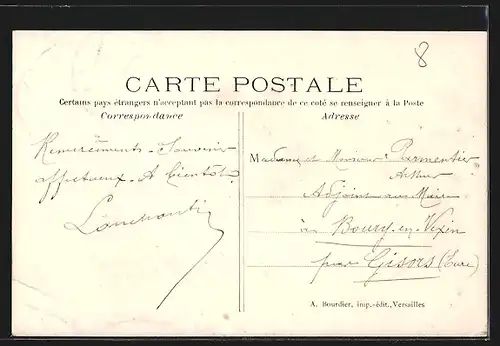 8
CARTE POSTALE
Certains pays étrangers n'acceptant pas la correspondance de ce coté se renseigner à la Poste
Correspondance
Adresse
Remerciements - Souvenir
affectueux - A bientôt
Madame et Monsieur Parmentier
Arthur
Adjoint au Maire
à Boury-en-Vexin
par Gisors (Eure)
A. Bourdier, imp.-édit., Versailles